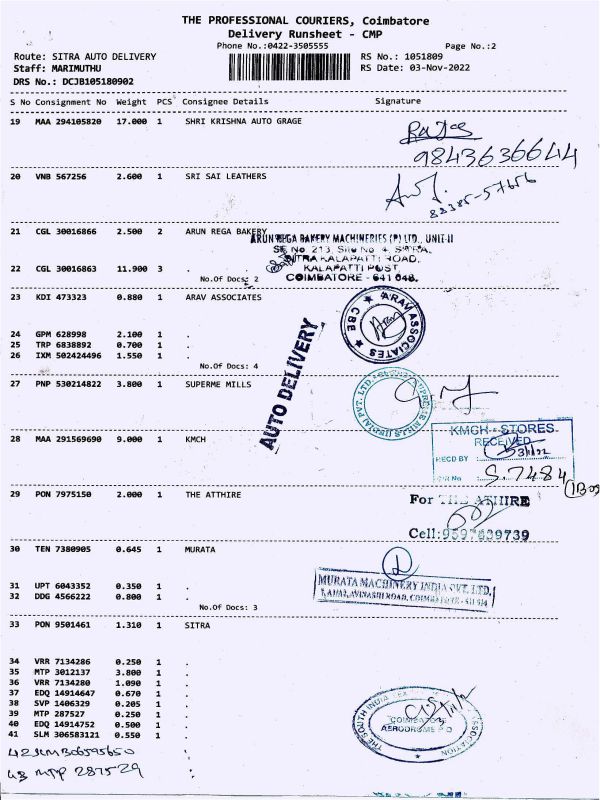 THE PROFESSIONAL COURIERS, Coimbatore
Delivery Runsheet - CMP
Phone No.:0422-3505555
Page No.:2
Route: SITRA AUTO DELIVERY
RS No.: 1051809
Staff: MARIMUTHU
RS Date: 03-Nov-2022
DRS No.: DCJB105180902
S No Consignment No Weight PCS Consignee Details Signature
19 MAA 294105820 17.000 1 SHRI KRISHNA AUTO GRAGE
9843636644
20 VNB 567256 2.600 1 SRI SAI LEATHERS
88385-57656
21 CGL 30016866 2.500 2 ARUN REGA BAKERY
ARUN REGA BAKERY MACHINERIES (P) LTD., UNIT-II
SF No. 213, Site No. 4, SITRA,
SITRA KALAPATTI ROAD,
KALAPATTI POST,
COIMBATORE - 641 048.
22 CGL 30016863 11.900 3 .
No.Of Docs: 2
23 KDI 473323 0.880 1 ARAV ASSOCIATES
ARAV ASSOCIATES
CBE
24 GPM 628998 2.100 1 .
25 TRP 6838892 0.700 1 .
26 IXM 502424496 1.550 1 .
No.Of Docs: 4
AUTO DELIVERY
27 PNP 530214822 3.800 1 SUPERME MILLS
28 MAA 291569690 9.000 1 KMCH
KMCH - STORES
RECEIVED
RECD BY
G/R No
S.7484
29 PON 7975150 2.000 1 THE ATTHIRE
For THE ATHIRE
Cell:9597639739
30 TEN 7380905 0.645 1 MURATA
MURATA MACHINERY INDIA PVT. LTD.
31 UPT 6043352 0.350 1 .
32 DDG 4566222 0.800 1 .
No.Of Docs: 3
33 PON 9501461 1.310 1 SITRA
34 VRR 7134286 0.250 1 .
35 MTP 3012137 3.800 1 .
36 VRR 7134280 1.090 1 .
37 EDQ 14914647 0.670 1 .
38 SVP 1406329 0.205 1 .
39 MTP 287527 0.250 1 .
40 EDQ 14914752 0.500 1 .
41 SLM 306583121 0.550 1 .
THE SOUTH INDIA
ASSOCIATION
COIMBATORE
AERODROME P.O
42 SLM 306595650
43 MTP 287529